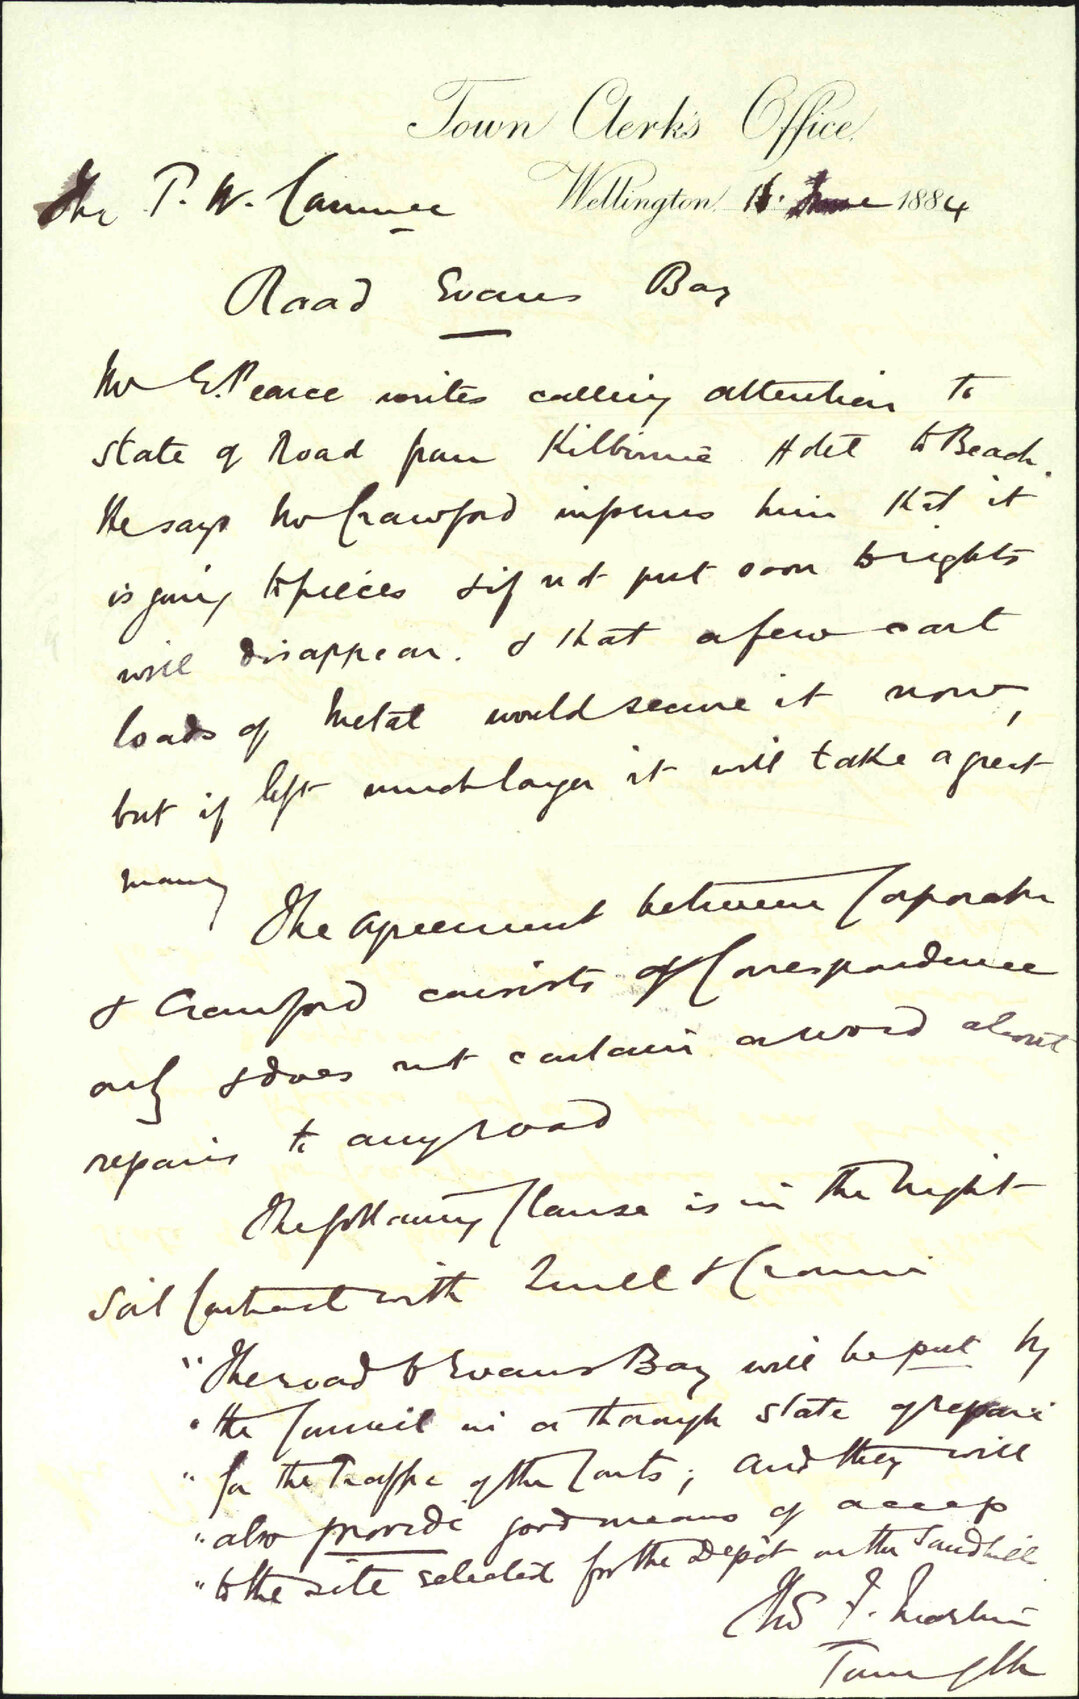 Town Clerk's Office
Wellington 11 June 1884
The P. W. Committee
Road Evans Bay
Mr E. Pearce writes calling attention to
state of Road from Kilbirnie Hotel to Beach.
He says Mr Crawford informs him that it
is going to pieces & if not put soon to rights
will disappear. & that a few cart
loads of Metal would secure it now,
but if left much longer it will take a great
many
The agreement between Corporatn
& Crawford consists of Correspondence
only & does not contain a word about
repairs to any road
The following Clause is in the Night
Soil Contract with &
"The road to Evans Bay will be put by
"the Council in a thorough state of repair
"for the Traffic of the Carts; and they will
"also provide good means of access
"to the site selected for the Depôt on the Sandhills
Town Clk